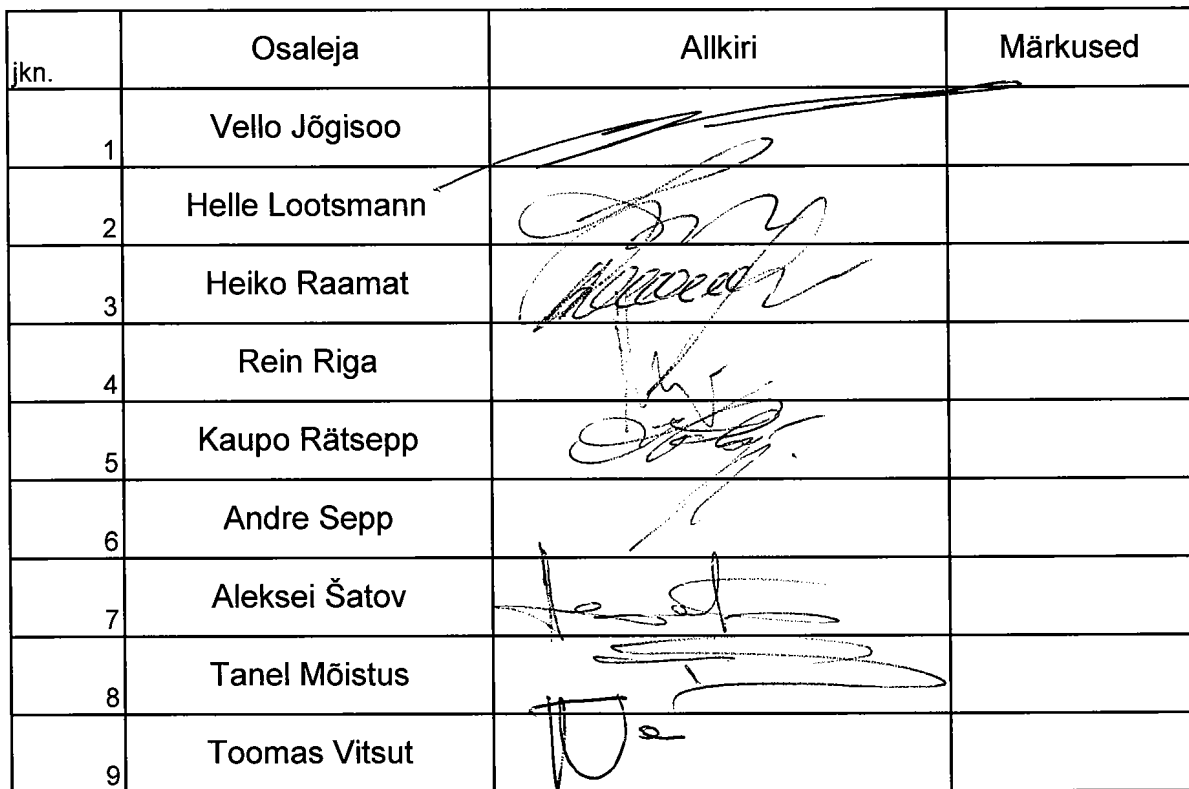 jkn. Osaleja Allkiri Märkused
1 Vello Jõgisoo
2 Helle Lootsmann
3 Heiko Raamat
4 Rein Riga
5 Kaupo Rätsepp
6 Andre Sepp
7 Aleksei Šatov
8 Tanel Mõistus
9 Toomas Vitsut